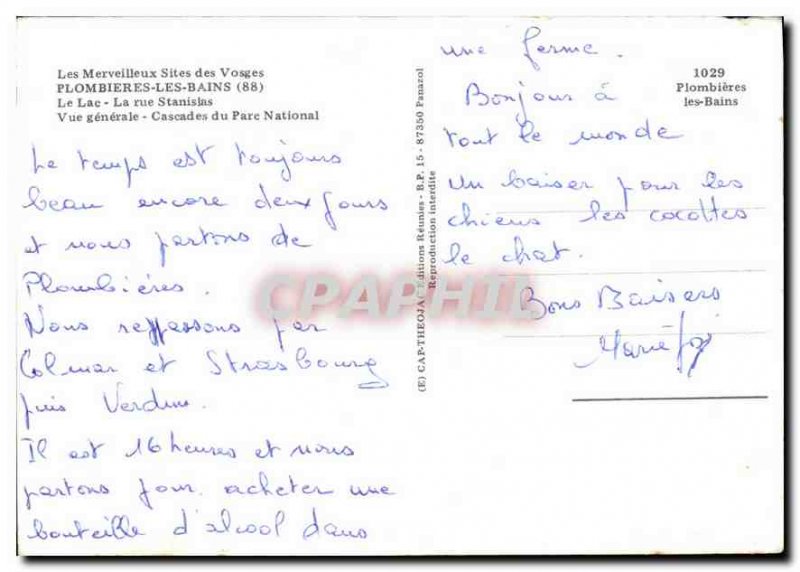 Les Merveilleux Sites des Vosges
PLOMBIERES-LES-BAINS (88)
Le Lac - La rue Stanislas
Vue générale - Cascades du Parc National
Le temps est toujours
beau encore deux jours
et nous partons de
Plombiéres.
Nous repassons par
Colmar et Strasbourg
puis Verdun.
Il est 16 heures et nous
partons pour acheter une
bouteille d'alcool dans
(E) CAP-THEOJAC Editions Réunies - B.P. 15 - 87350 Panazol
Reproduction interdite
1029
Plombières
les-Bains
une ferme.
Bonjour à
tout le monde
Un baiser pour les
chiens les cocottes
le chat.
Bons Baisers
Marie
CPAPHIL